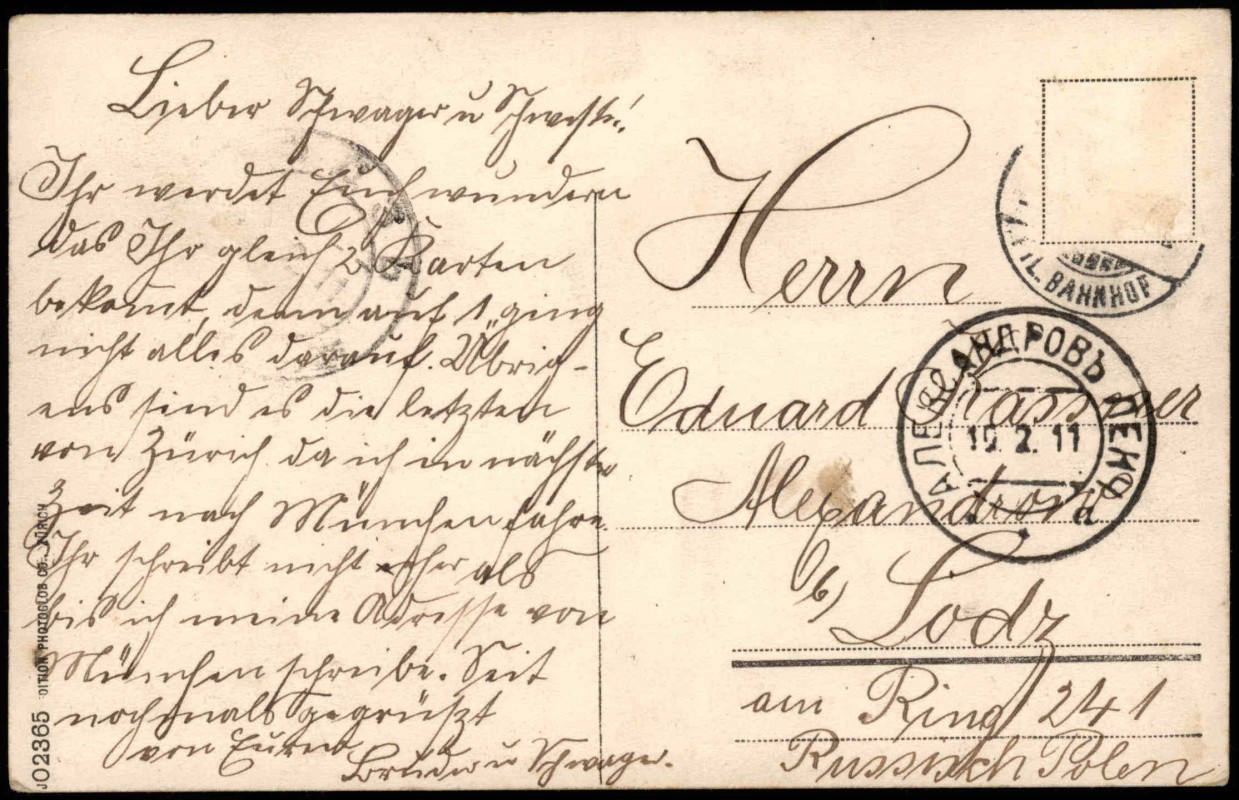 Lieber Schwager u Schwest:
Ihr werdet Euch wundern
das Ihr gleich 2 Karten
bekomt, denn auf 1 ging
nicht alles darauf. Übrig-
ens sind es die letzten
von Zürich da ich in nächster
Zeit nach München fahre.
Ihr schreibt nicht eher als
bis ich meine Adresse von
München schreibe. Seit
nochmals gegrüßt
von Euren
Bruder u Schwager.
Herrn
Eduard
Alexandrow
b/ Lodz
am Ring 241
Russisch Polen
FIL. BAHNHOF
АЛЕКСАНДРОВЪ ПЕКР.
19.2.11
d
JO2365 DITION PHOTOGLOB CO., ZÜRICH